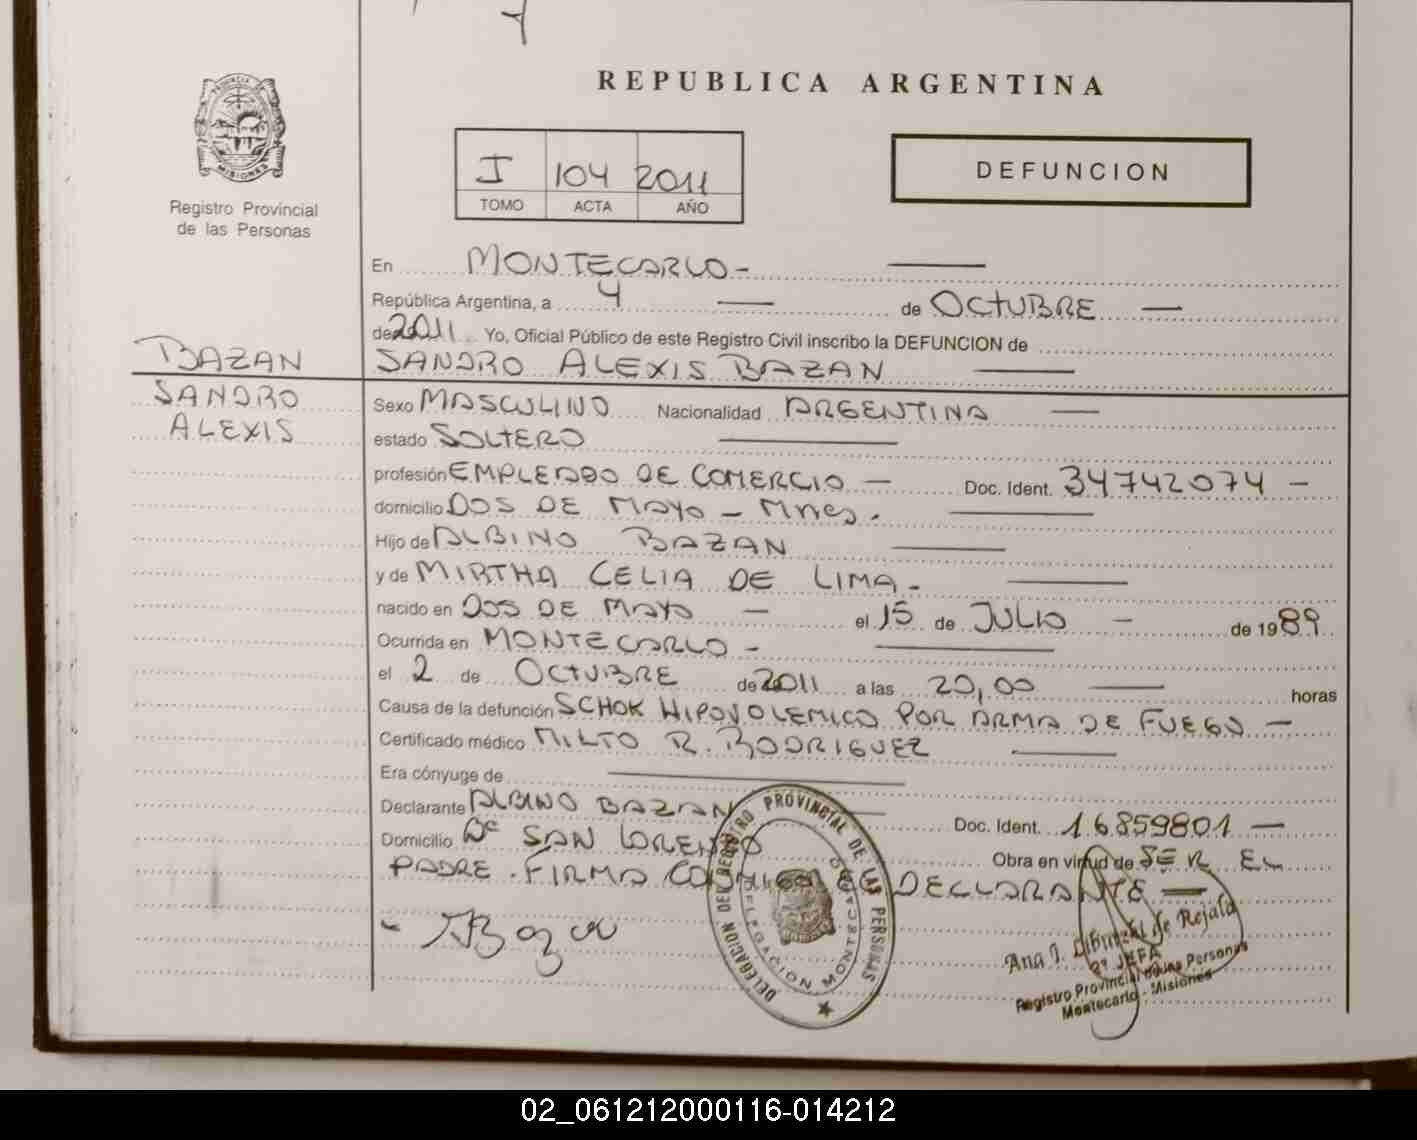 REPUBLICA ARGENTINA
MISIONES
Registro Provincial
de las Personas
I 104 2011
TOMO ACTA AÑO
DEFUNCION
En MONTECARLO-
República Argentina, a 4 de OCTUBRE
de 2011 Yo, Oficial Público de este Registro Civil inscribo la DEFUNCION de
BAZAN SANDRO ALEXIS BAZAN
SANDRO Sexo MASCULINO Nacionalidad ARGENTINA
ALEXIS estado SOLTERO
profesión EMPLEADO DE COMERCIO - Doc. Ident. 34742074 -
domicilio DOS DE MAYO - Mnes.
Hijo de ALBINO BAZAN
y de MIRTHA CELIA DE LIMA.
nacido en DOS DE MAYO - el 15 de JULIO - de 1989
Ocurrida en MONTECARLO -
el 2 de OCTUBRE de 2011 a las 20,00 horas
Causa de la defunción SCHOK HIPOVOLEMICO POR ARMA DE FUEGO -
Certificado médico MILTO R. RODRIGUEZ
Era cónyuge de
Declarante ALBINO BAZAN Doc. Ident. 16859801 -
Domicilio Bº SAN LORENZO Obra en virtud de SER EL
PADRE. FIRMA CONMIGO EL DECLARANTE -
- ABazan
DELEGACION DE REGISTRO PROVINCIAL DE LAS PERSONAS
DELEGACION MONTECARLO
Ana J. de Rejala
2º JEFA
Registro Provincial de las Personas
Montecarlo - Misiones
02_061212000116-014212